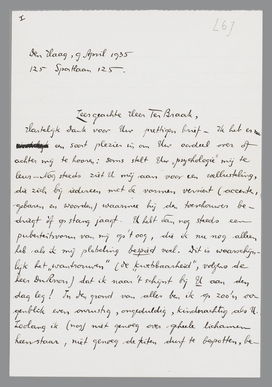 I
[6]
Den Haag, 9 April 1935
125 Sportlaan 125.
Zeergeachte Heer Ter Braak,
Hartelijk dank voor Uw prettigen brief. Ik het er
en soort plezier in om Uw oordeel over
achter mij te hooren: soms stelt Uw "psychologie" mij te
leur. Nog steeds ziet U mij aan voor een
die zich bij iedereen met de vormen (accenten,
gebaren en woorden) waarmee hij de toeschouwer be-
driegt of op stang jaagt. Ik heb dan nog steeds een
puberteitsvorm van mij op 't oog, die ik nu nog alleen
heb als ik mij plotseling bespied voel. Dit is waarschijn-
lijk het "wantrouwen" (de "kwetsbaarheid", volgens de
heer Du Perron) dat ik naar 't schijnt bij U aan den
dag leg! In den grond van alles ben ik op zoo'n
oogenblik even onrustig, ongeduldig, kinderachtig als U.
Zoolang ik (nog) niet genoeg over geheele lichamen
heerscht, niet genoeg de feiten durf te bespotten, be-